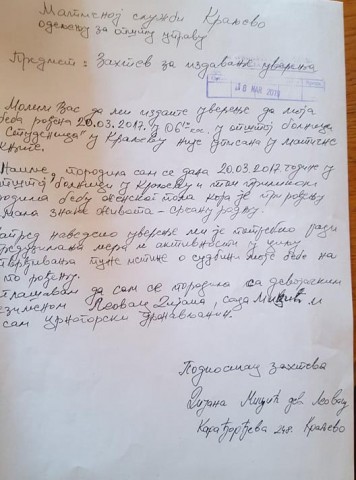 Матичној служби Краљево
одељењу за општу управу
Предмет: Захтев за издавање уверења
МАР 2019
Молим Вас да ми издате уверење да моја
беба рођена 20.03.2017. у 06 у општој болници
"Студеница" у Краљеву није уписана у матичне
књиге.
Наиме, породила сам се дана 20.03.2017. године у
општој болници у Краљеву и том приликом
родила бебу женског пола која је при рођењу
имала знаке живота - срчану радњу.
Напред наведено уверење ми је потребно ради
предузимања мера и активности у циљу
утврђивања пуне истине о судбини моје бебе на
по рођењу.
да сам се породила са девојачким
презименом Леовац Дијана, сада Мицић и
сам црногорски држављанин.
Подносилац захтева
Дијана Мицић дев Леовац
Карађорђева Краљево